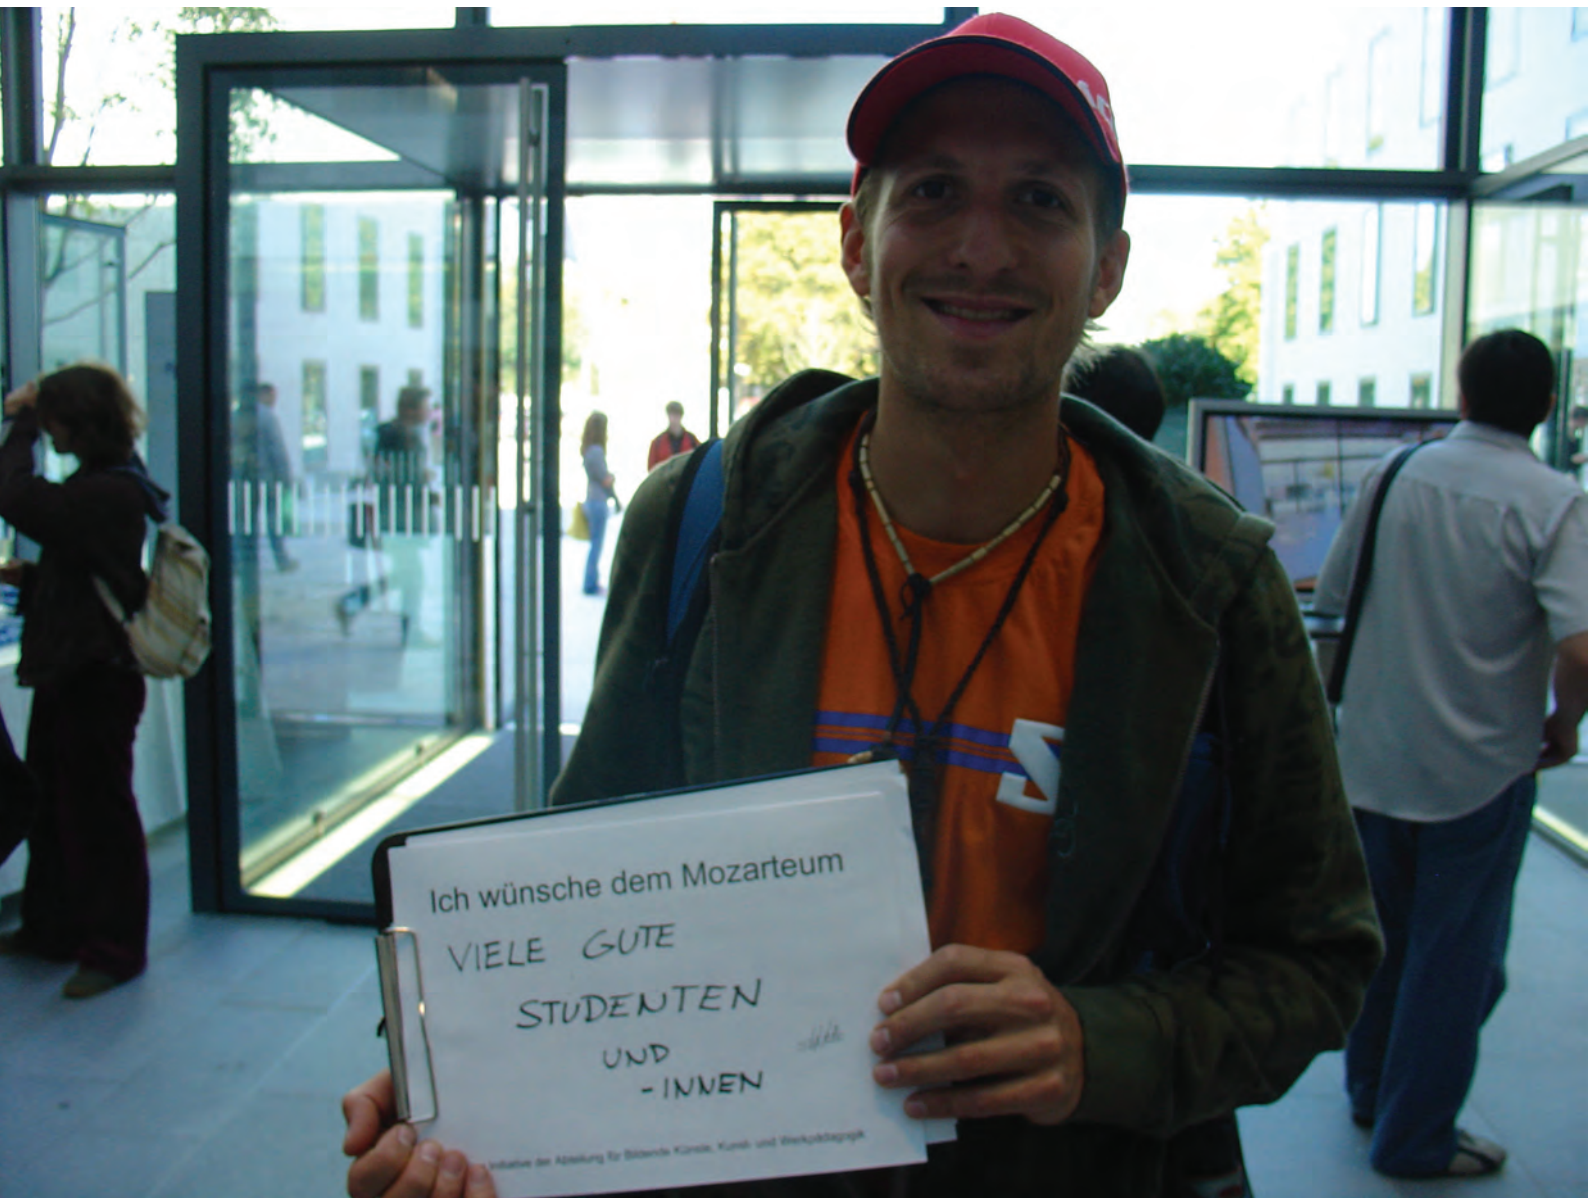 Ich wünsche dem Mozarteum
VIELE GUTE
STUDENTEN
UND
-INNEN
Initiative der Abteilung für Bildende Künste, Kunst- und Werkpädagogik